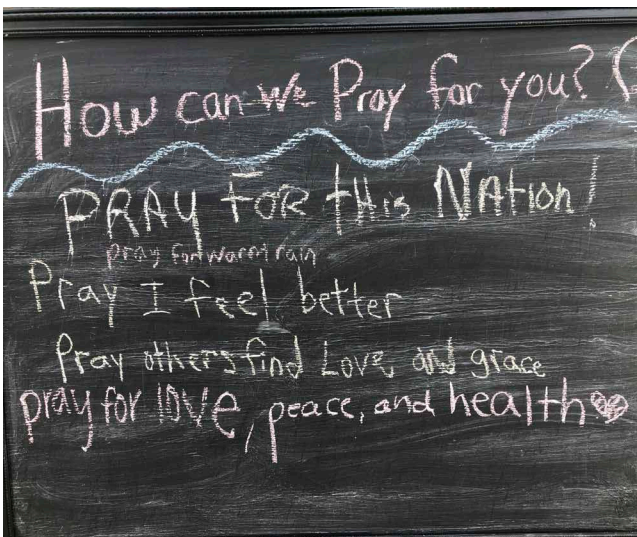 How can We Pray for you?
PRAY FOR this NAtion!
pray for warm rain
Pray I feel better
Pray others find Love and grace
pray for love, peace, and health